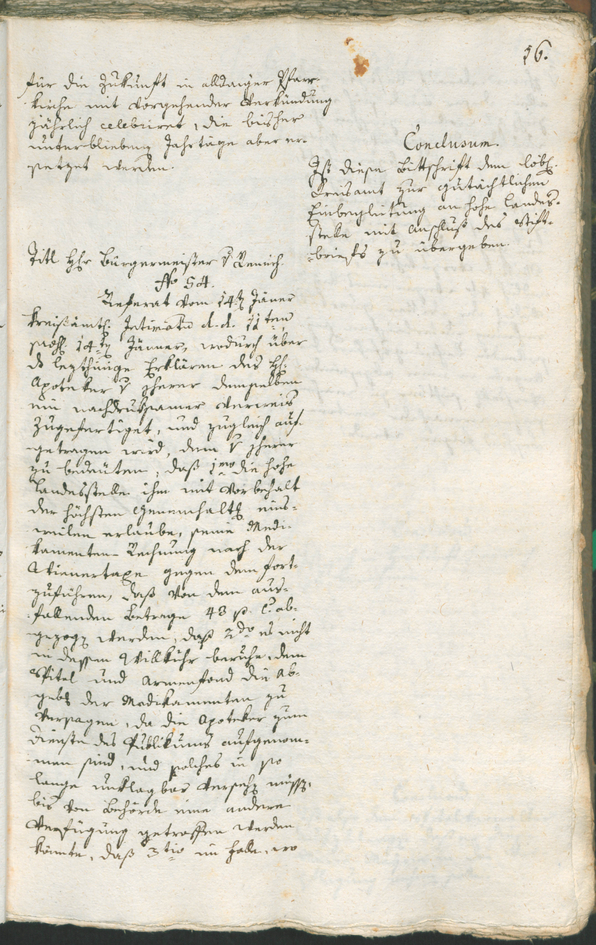 26.
für die Zukunft in alldaiger Pfarr-
kirche mit vorgehender Verkündung
jährlich celebriret, die bisher
unterbliebenen Jahrtäge aber er-
setzet werden.
Conclusum.
Ist diese Bittschrift dem löbl.
Kreisamt zur gutächtlichen
Einbegleitung an hohe Landes-
stelle mit Anschluß des Stift-
briefs zu übergeben.
Titl Hr Bürgermeister v
No 54.
Referat vom 14t Jäner
Kreisämtl. Intimatio d. d. 11ten
14ten Jänner, wodurch über
Erklären des H
Apoteker v demselben
ein nachdruksamer Verweis
zugefertiget, und zugleich auf-
getragen wird, dem v
zu bedeuten, daß 1mo die hohe
Landesstelle ihm mit Vorbehalt
der höchsten Genemhaltg einst-
weilen erlaube, seine Medi-
kamenten-Rechnung nach der
Wienertaxe gegen dem fort-
zuführen, daß von dem aus-
fallenden Betrage 48 ab-
gezogen werden, daß 2do es nicht
in dessen Willkühr beruhe, dem
Spital und Armenfond die Ab-
gabe der Medikamenten zu
versagen, da die Apoteker zum
Dienste des Publikums aufgenom-
men sind, und solches in so
lange unklagbar versehen müsse,
bis von Behörde eine andere
Verfügung getroffen werden
könnte, daß 3tio im Falle, wo